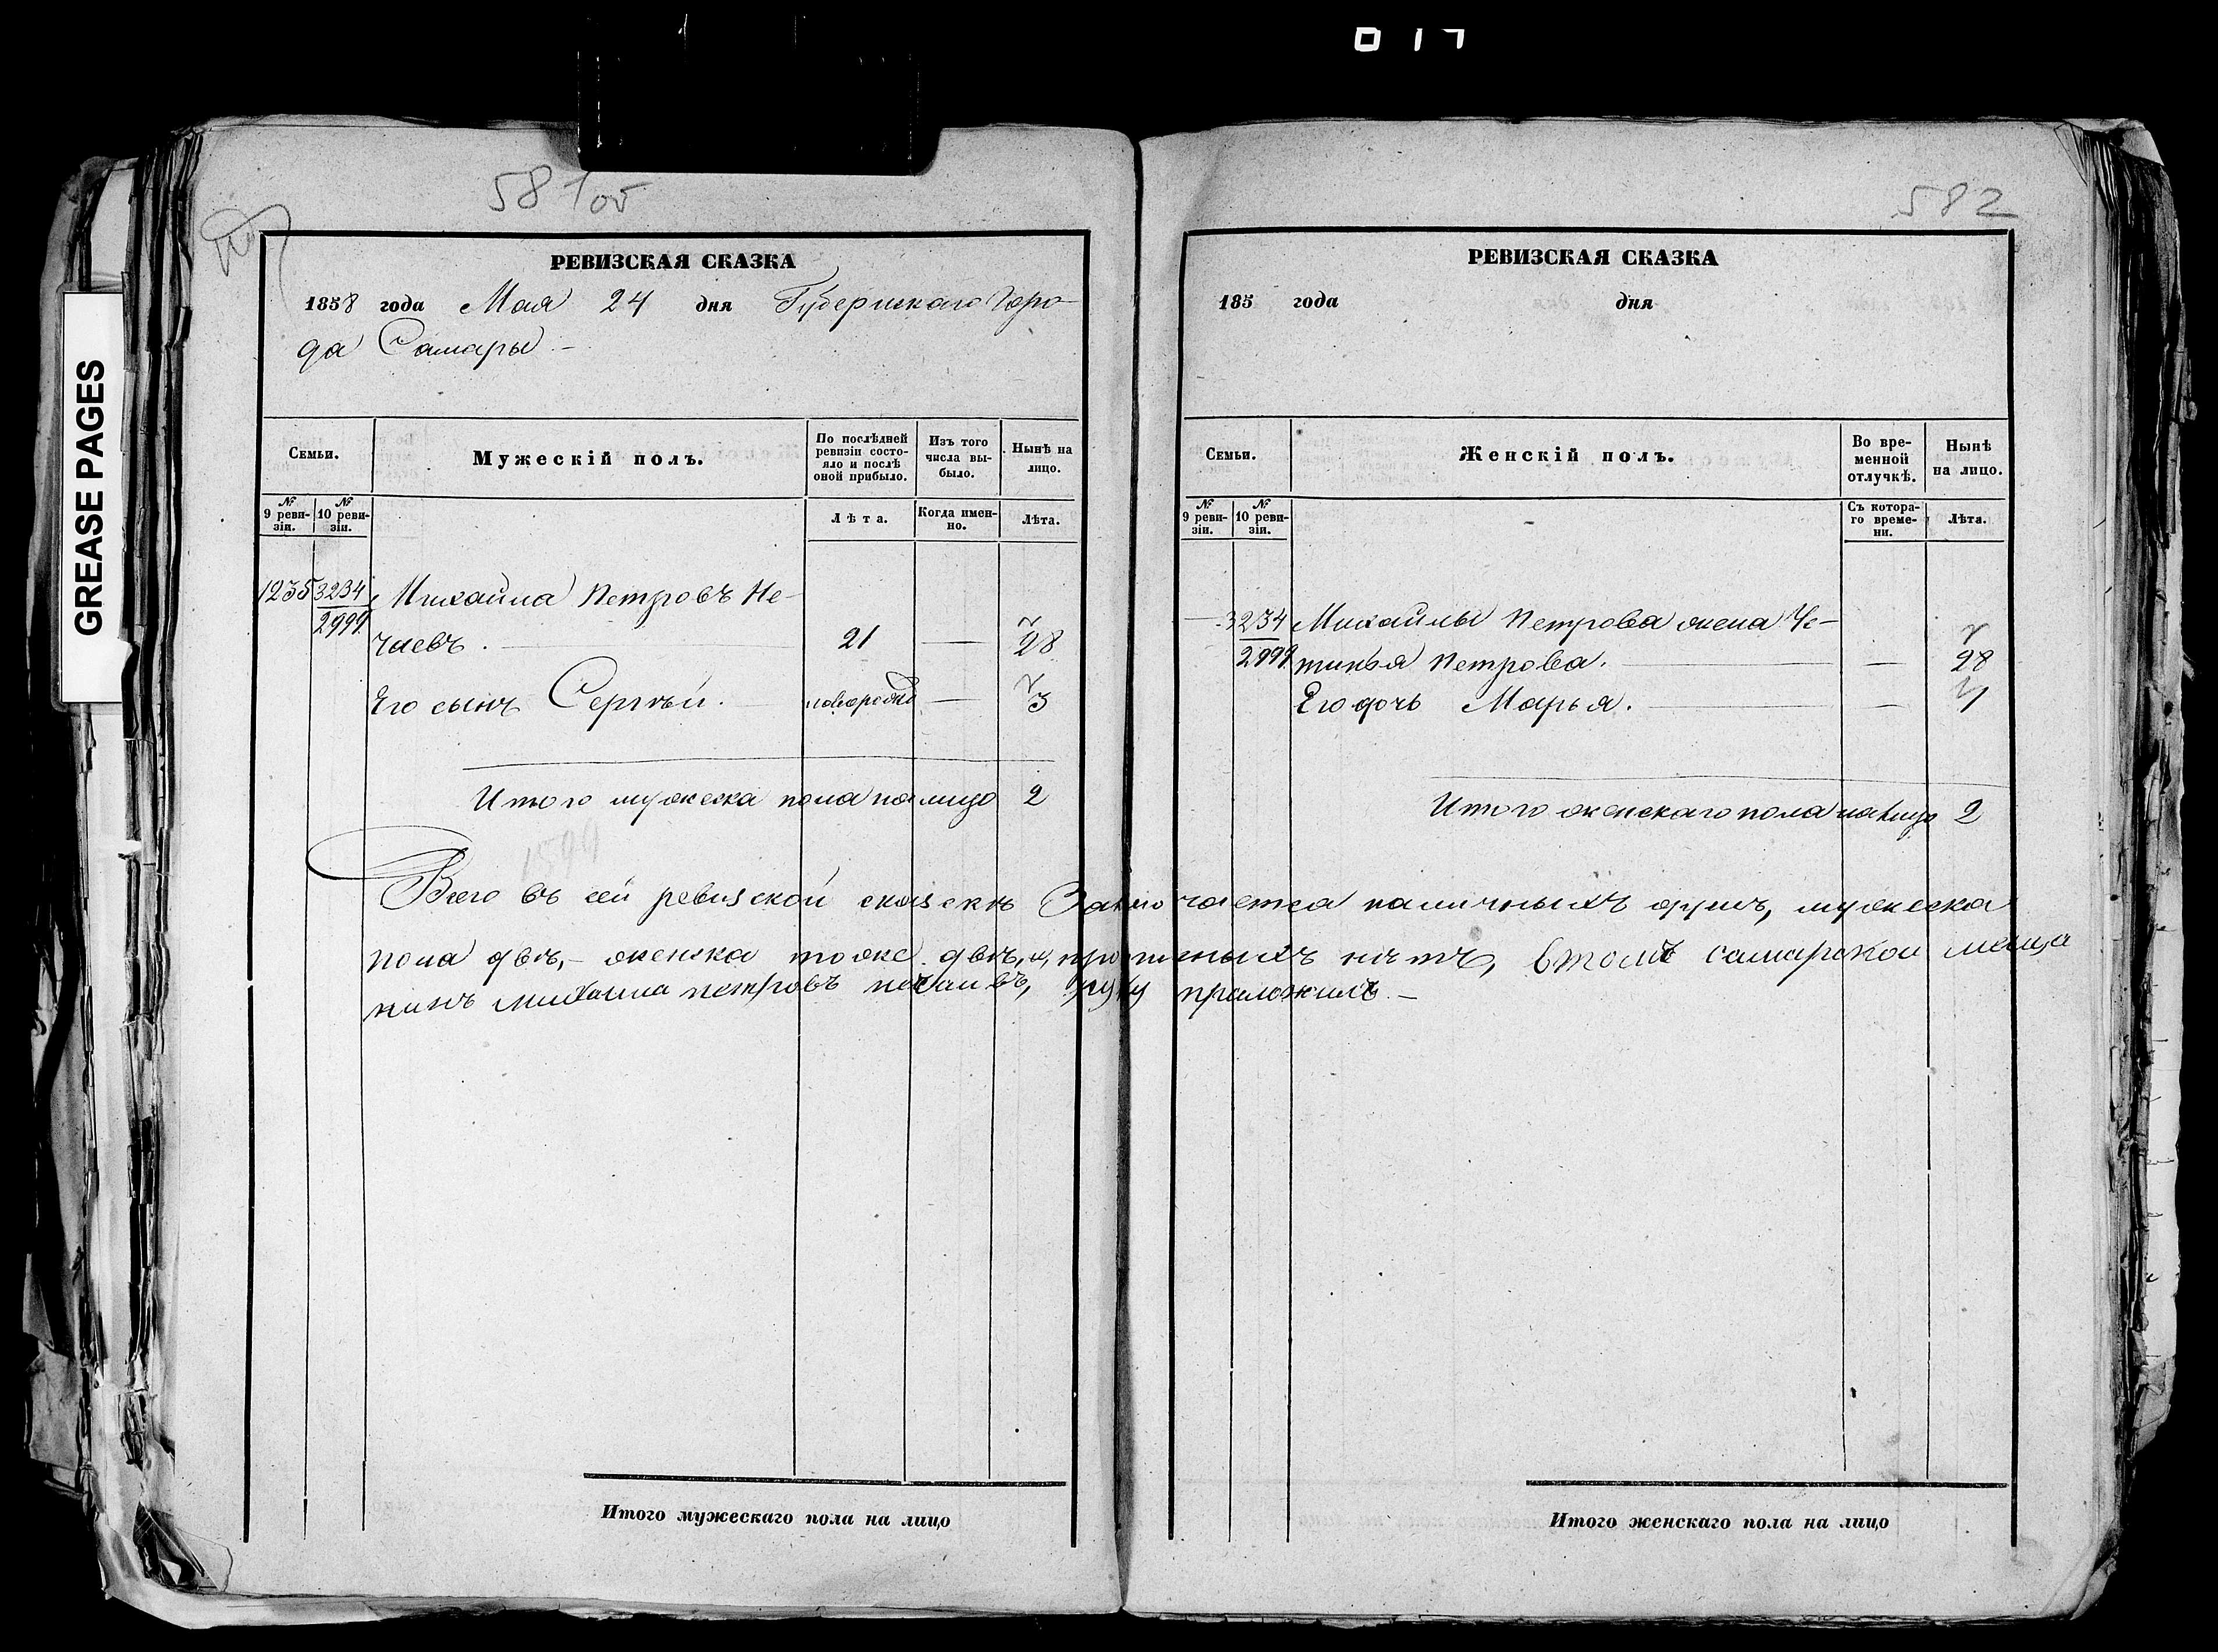 017
GREASE PAGES
581об
РЕВИЗСКАЯ СКАЗКА
1858 года Мая 24 дня Губернскаго Горо-
да Самары. –
Семьи.
Мужескій полъ.
По послѣдней ревизіи состояло и послѣ оной прибыло.
Изъ того числа выбыло.
Нынѣ на лицо.
№ 9 ревизіи.
№ 10 ревизіи.
Лѣта.
Когда именно.
Лѣта.
1235 3234 Михайла Петровъ Не-
2999 чаевъ. 21 — 28
Его сынъ Сергѣй. новорожд — 3
Итого мужеска пола налицо 2
1599
582
РЕВИЗСКАЯ СКАЗКА
185 года дня
Семьи.
Женскій полъ.
Во временной отлучкѣ.
Нынѣ на лицо.
№ 9 ревизіи.
№ 10 ревизіи.
Съ котораго времени.
Лѣта.
— 3234 Михайлы Петрова жена Ус-
2999 тинья Петрова. — 28
Его дочь Марья. —
Итого женскаго пола налицо 2
Всего въ сей ревизской сказкѣ Заключается наличныхъ душъ, мужеска
пола двѣ, – женска тоже двѣ, и, прописныхъ нѣтъ, втомъ самарской меща
нинъ михаила петровъ нечаивъ, руку приложилъ. –
Итого мужескаго пола на лицо
Итого женскаго пола на лицо